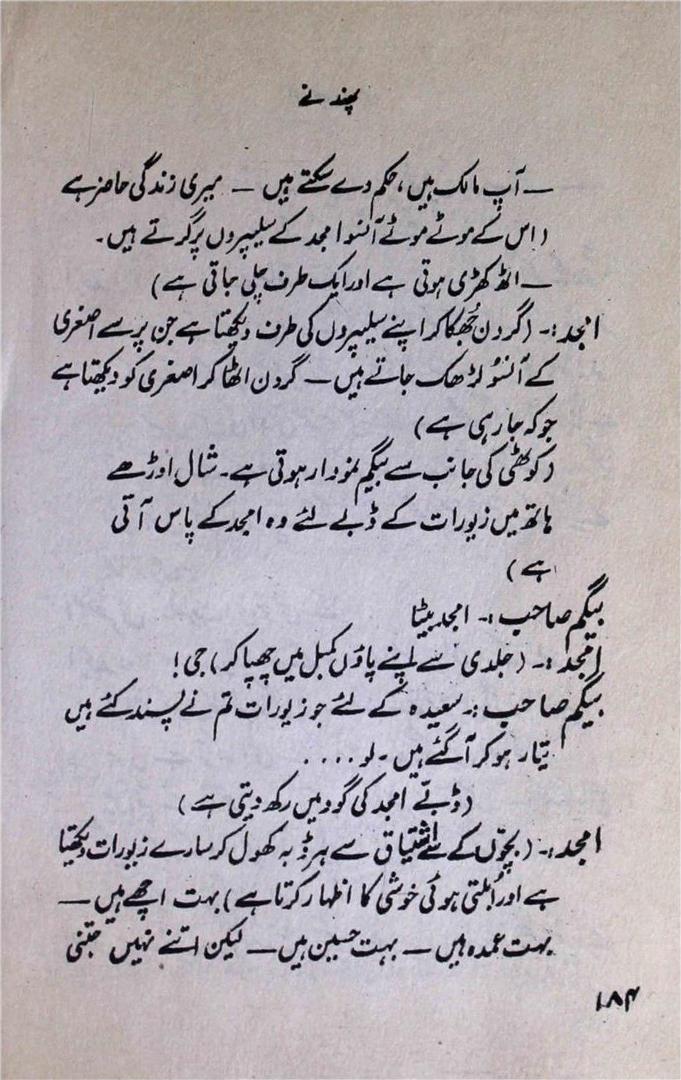 پھندنے
— آپ مالک ہیں، حکم دے سکتے ہیں — میری زندگی حاضر ہے
(اس کے موٹے موٹے آنسو امجد کے سلیپروں پر گرتے ہیں۔
— اٹھ کھڑی ہوتی ہے اور ایک طرف چلی جاتی ہے)
امجد :- (گردن جُھکا کر اپنے سلیپروں کی طرف دیکھتا ہے جن پر سے اصغری
کے آنسو لڑھک جاتے ہیں — گردن اٹھا کر اصغری کو دیکھتا ہے
جو کہ جا رہی ہے)
(کوٹھی کی جانب سے بیگم نمودار ہوتی ہے۔ شال اوڑھے
ہاتھ میں زیورات کے ڈبے لئے وہ امجد کے پاس آتی
ہے)
بیگم صاحب :- امجد بیٹا
امجد :- (جلدی سے اپنے پاؤں کمبل میں چھپا کر) جی!
بیگم صاحب :- سعیدہ کے لئے جو زیورات تم نے پسند کئے ہیں
تیار ہو کر آ گئے ہیں۔ لو....
(ڈبے امجد کی گود میں رکھ دیتی ہے)
امجد :- (بچّوں کے سے اشتیاق سے ہر ڈبہ کھول کر سارے زیورات دیکھتا
ہے اور اُبلتی ہوئی خوشی کا اظہار کرتا ہے) بہت اچھے ہیں —
بہت عمدہ ہیں — بہت حسین ہیں — لیکن اتنے نہیں جتنی
۱۸۴